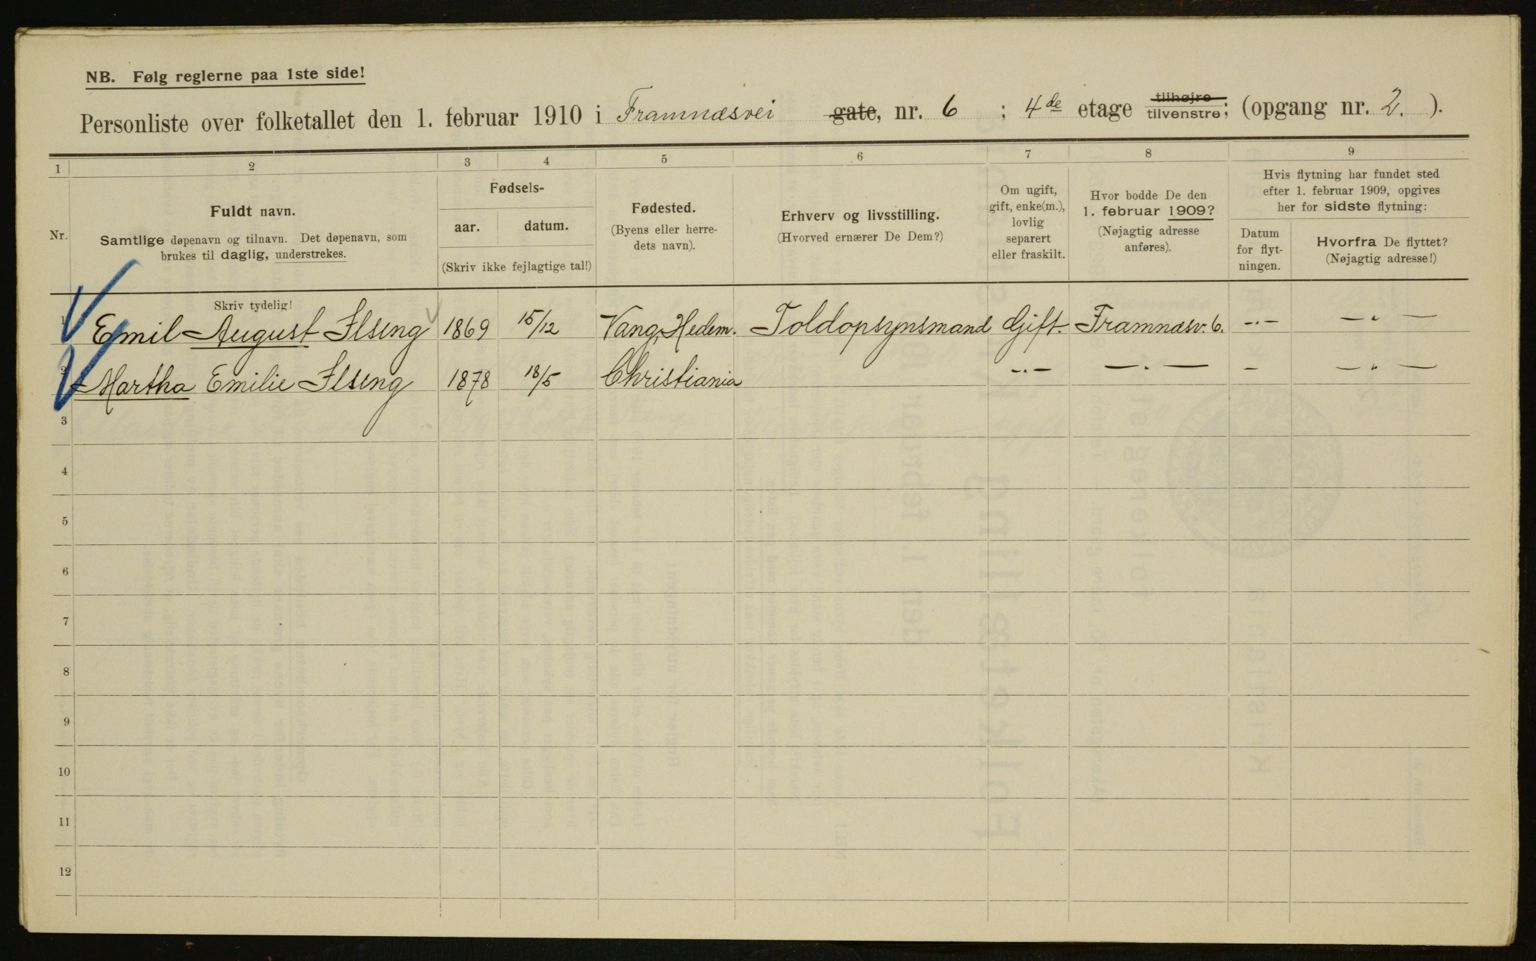 NB. Følg reglerne paa 1ste side!
Personliste over folketallet den 1. februar 1910 i Framnæsvei gate, nr. 6 ; 4de etage tilhøjre tilvenstre; (opgang nr. 2. ).
1 2 3 4 5 6 7 8 9
Nr.
Fuldt navn.
Samtlige døpenavn og tilnavn. Det døpenavn, som
brukes til daglig, understrekes.
Fødsels-
aar. datum.
(Skriv ikke fejlagtige tal!)
Fødested.
(Byens eller herre-
dets navn).
Erhverv og livsstilling.
(Hvorved ernærer De Dem?)
Om ugift,
gift, enke(m.),
lovlig
separert
eller fraskilt.
Hvor bodde De den
1. februar 1909?
(Nøjagtig adresse
anføres).
Hvis flytning har fundet sted
efter 1. februar 1909, opgives
her for sidste flytning:
Datum
for flyt-
ningen.
Hvorfra De flyttet?
(Nøjagtig adresse!)
Skriv tydelig!
1 Emil August Ilseng 1869 15/12 Vang, Hedem. Toldopsynsmand Gift. Framnæsv. 6. -"- -"-
2 Martha Emilie Ilseng 1878 18/5 Christiania -"- -"- - -"-
3
4
5
6
7
8
9
10
11
12